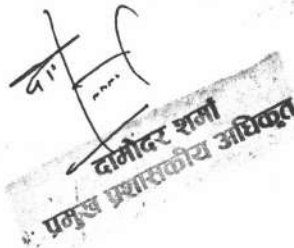 दामोदर शर्मा
प्रमुख प्रशासकीय अधिकृत